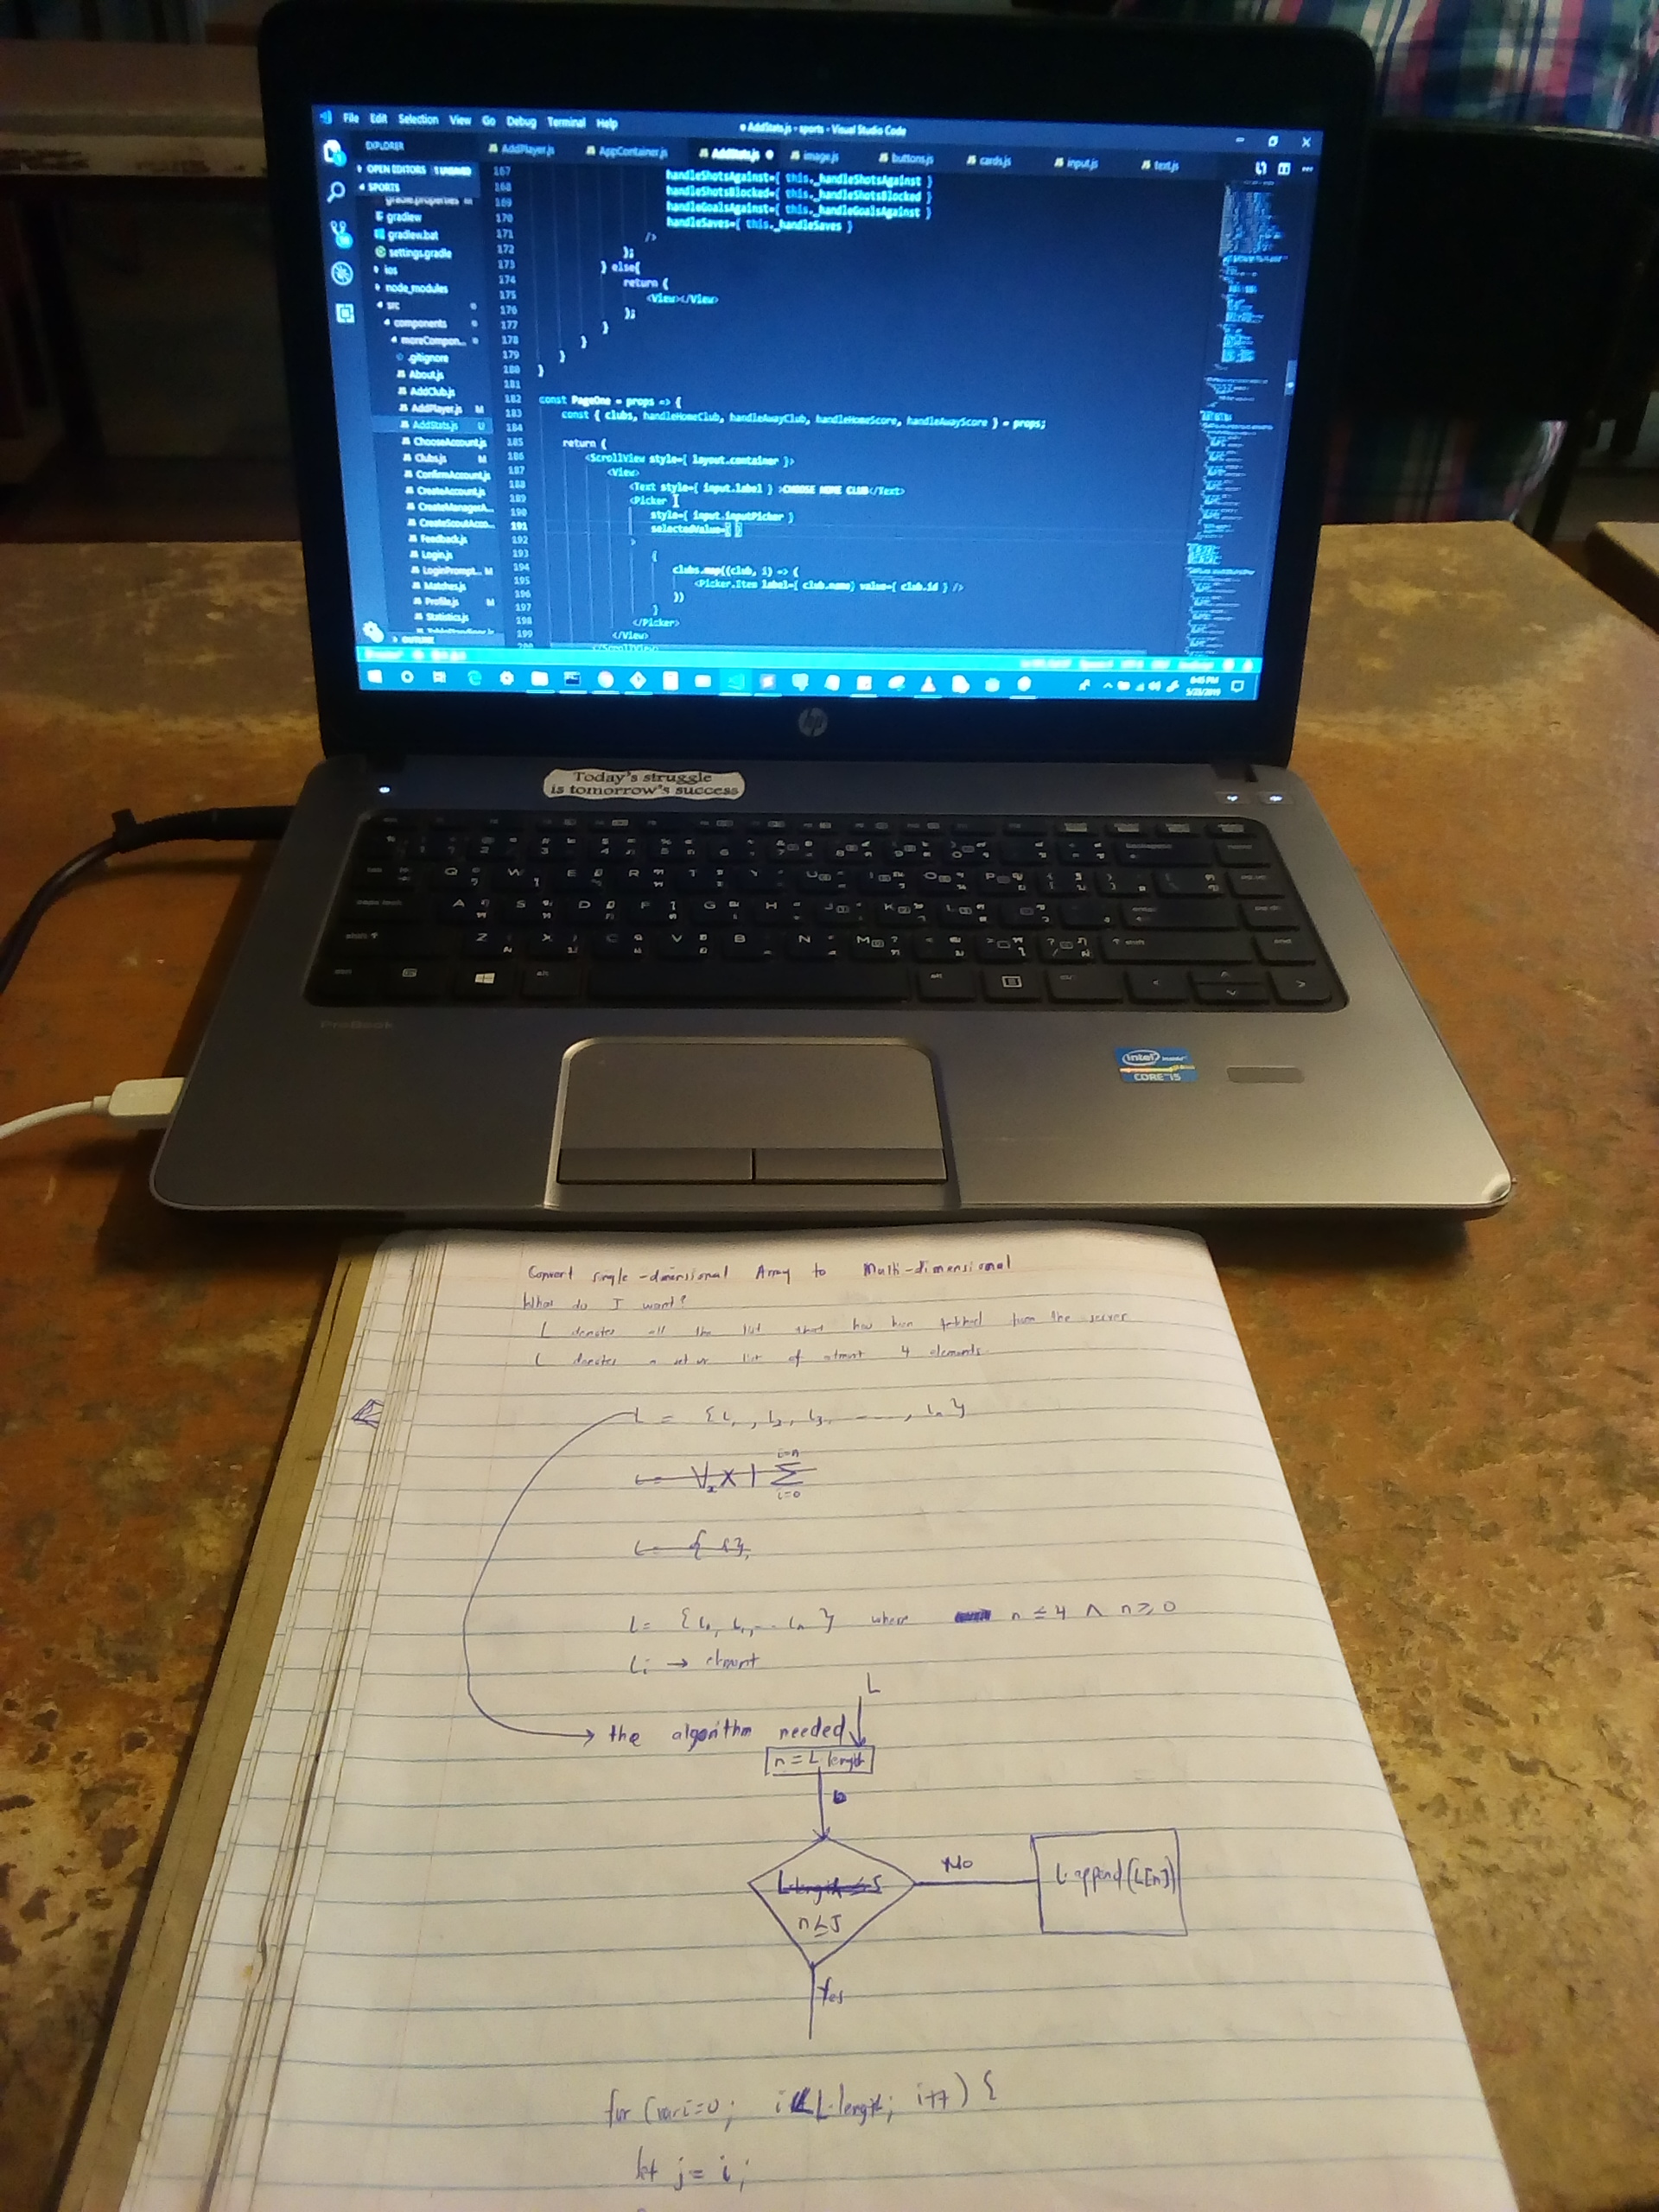 File Edit Selection View Go Debug Terminal Help
● AddStats.js - sports - Visual Studio Code
EXPLORER
AddPlayer.js AppContainer.js AddStats.js image.js buttons.js cards.js input.js text.js
OPEN EDITORS 1 UNSAVED
SPORTS
gradle.properties M
gradlew
gradlew.bat
settings.gradle
ios
node_modules
src
components
moreCompon...
.gitignore
About.js
AddClub.js
AddPlayer.js M
AddStats.js U
ChooseAccount.js
Clubs.js M
ConfirmAccount.js
CreateAccount.js
CreateManagerA...
CreateScoutAcco...
Feedback.js
Login.js
LoginPrompt... M
Matches.js
Profile.js M
Statistics.js
OUTLINE
167 handleShotsAgainst={ this._handleShotsAgainst }
168 handleShotsBlocked={ this._handleShotsBlocked }
169 handleGoalsAgainst={ this._handleGoalsAgainst }
170 handleSaves={ this._handleSaves }
171 />
172 );
173 } else{
174 return (
175 <View></View>
176 );
177 }
178 }
179 }
180 }
181
182 const PageOne = props => {
183 const { clubs, handleHomeClub, handleAwayClub, handleHomeScore, handleAwayScore } = props;
184
185 return (
186 <ScrollView style={ layout.container }>
187 <View>
188 <Text style={ input.label } >CHOOSE HOME CLUB</Text>
189 <Picker
190 style={ input.inputPicker }
191 selectedValue={ }
192 >
193 {
194 clubs.map((club, i) => (
195 <Picker.Item label={ club.name} value={ club.id } />
196 ))
197 }
198 </Picker>
199 </View>
200 </ScrollView>
8:45 PM
hp
Today's struggle
is tomorrow's success
Q W E R T Y U I O P
caps lock A S D F G H J K L enter
shift Z X C V B N M shift
alt
ProBook
intel inside
CORE i5
Convert single-dimensional Array to Multi-dimensional
What do I want?
L denotes all the list that has been fetched from the server
l denotes a set or list of atmost 4 elements
L = {l₁, l₂, l₃, ----, lₙ}
i=n
∀ₓ X | Σ
i=0
where n ≤ 4 ∧ n ≥ 0
lᵢ → element
L
→ the algorithm needed
n = L.length
L.length ≤ 5
No
l.append(L[n])
n ≤ 5
Yes
for (var i=0; i<L.length; i++) {
let j = i;